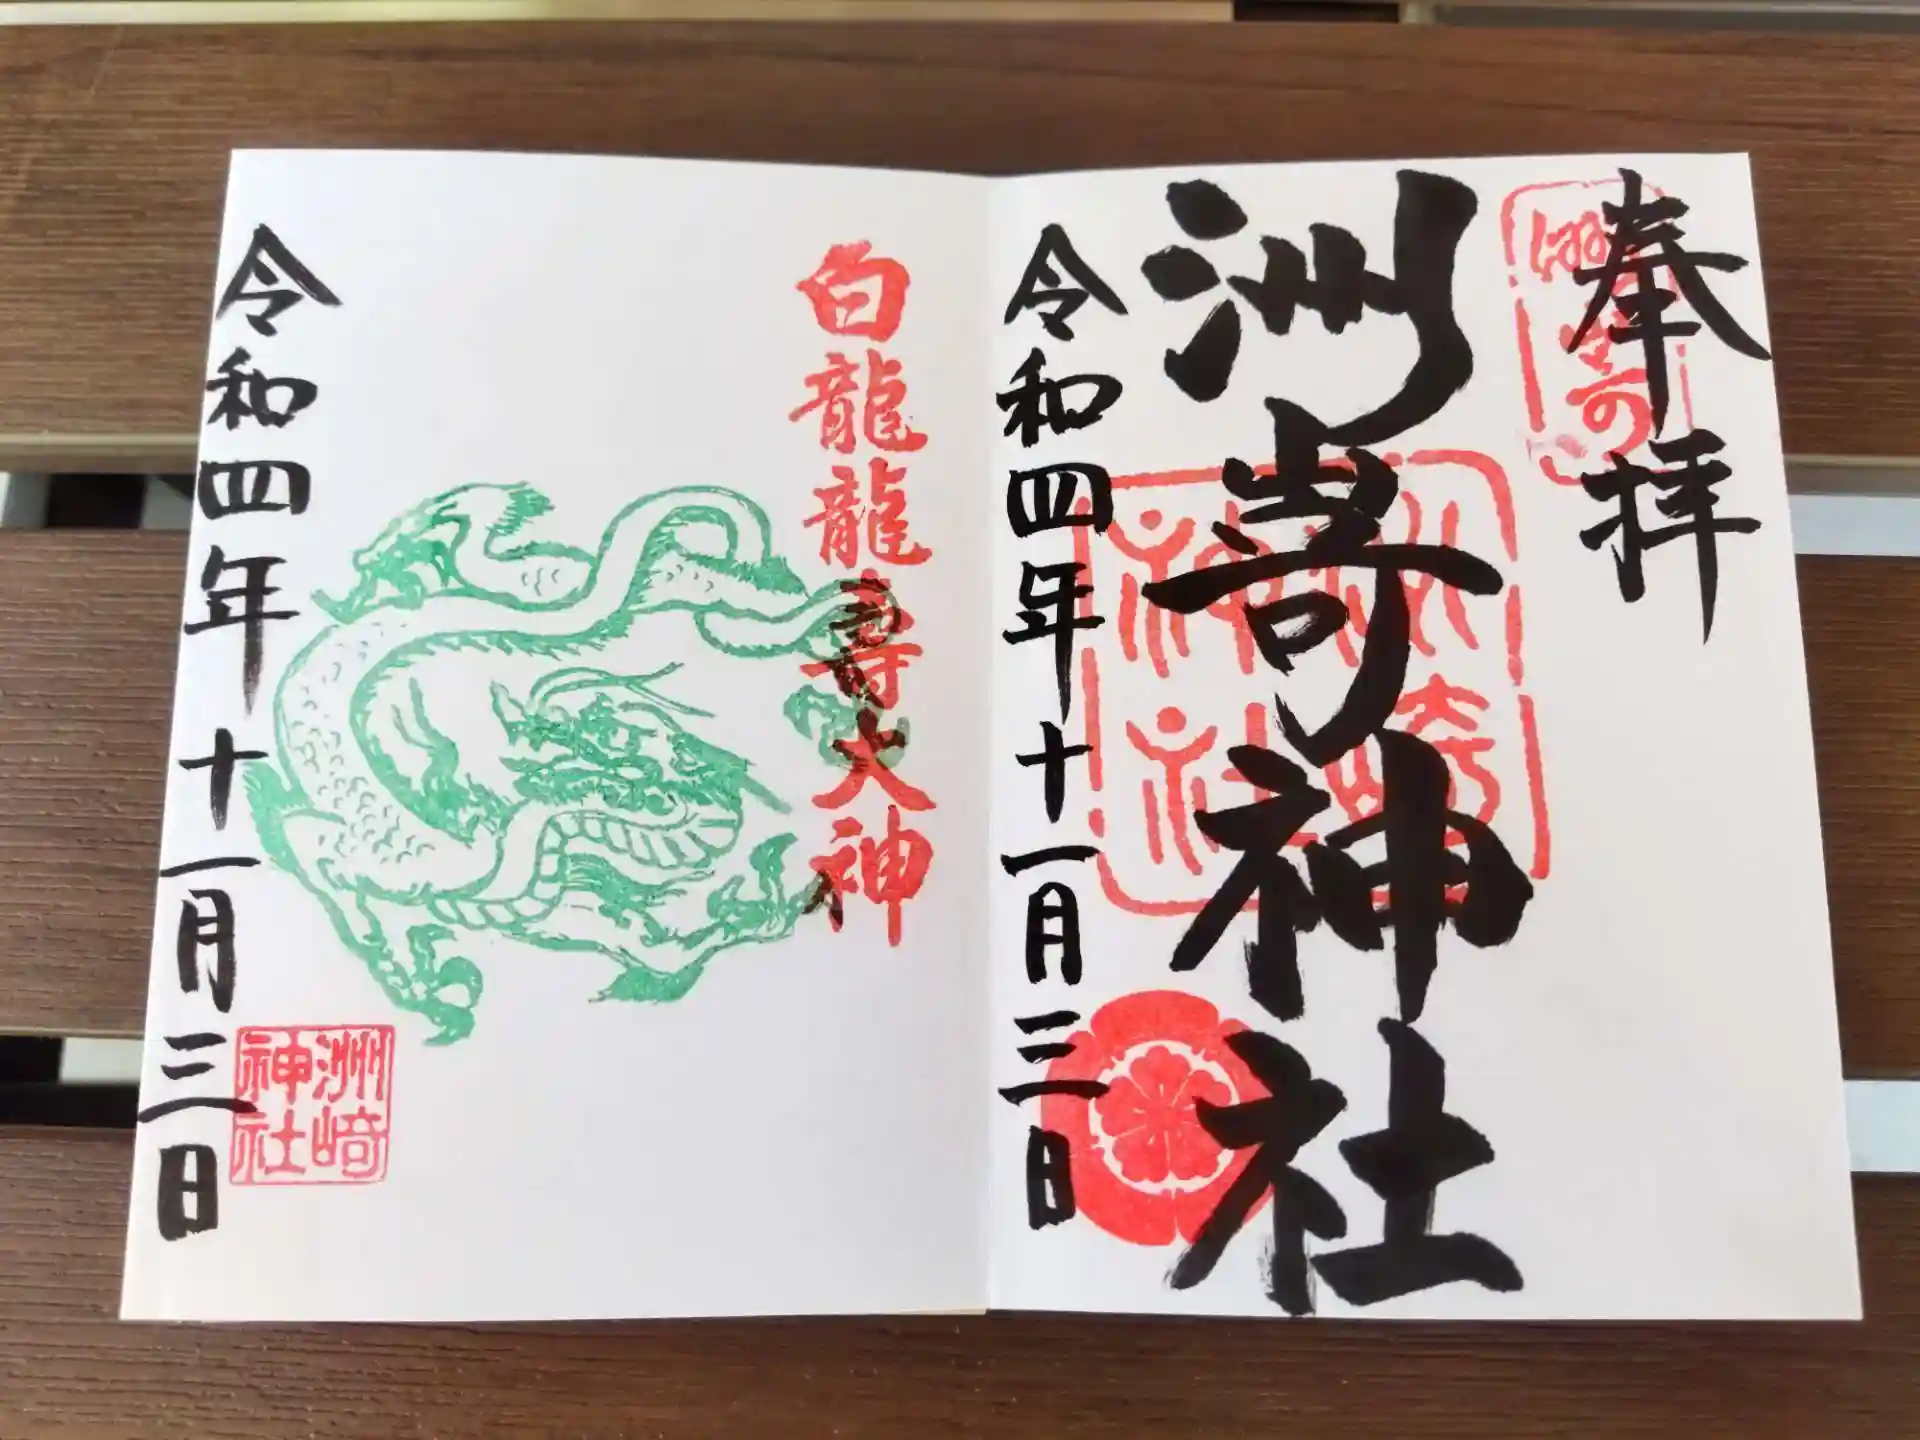 奉拝
洲崎神社
洲崎神社
令和四年十一月三日
白龍龍寿大神
令和四年十一月三日
洲崎神社